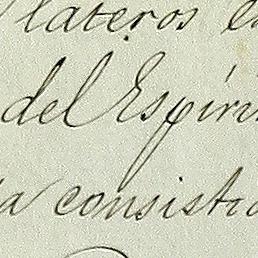 lateros e
del Espíri
a consistia